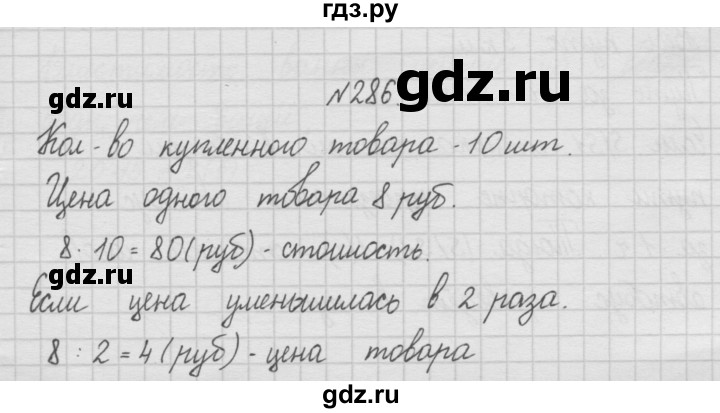 гдз.ру
gdz.ru
gdz.ru
№286
gdz.ru
Кол-во купленного товара - 10 шт.
Цена одного товара 8 руб.
gdz.ru
8 · 10 = 80 (руб) - стоимость.
gdz.ru
gdz.ru
Если цена уменьшилась в 2 раза.
8 : 2 = 4 (руб) - цена товара
gdz.ru
gdz.ru